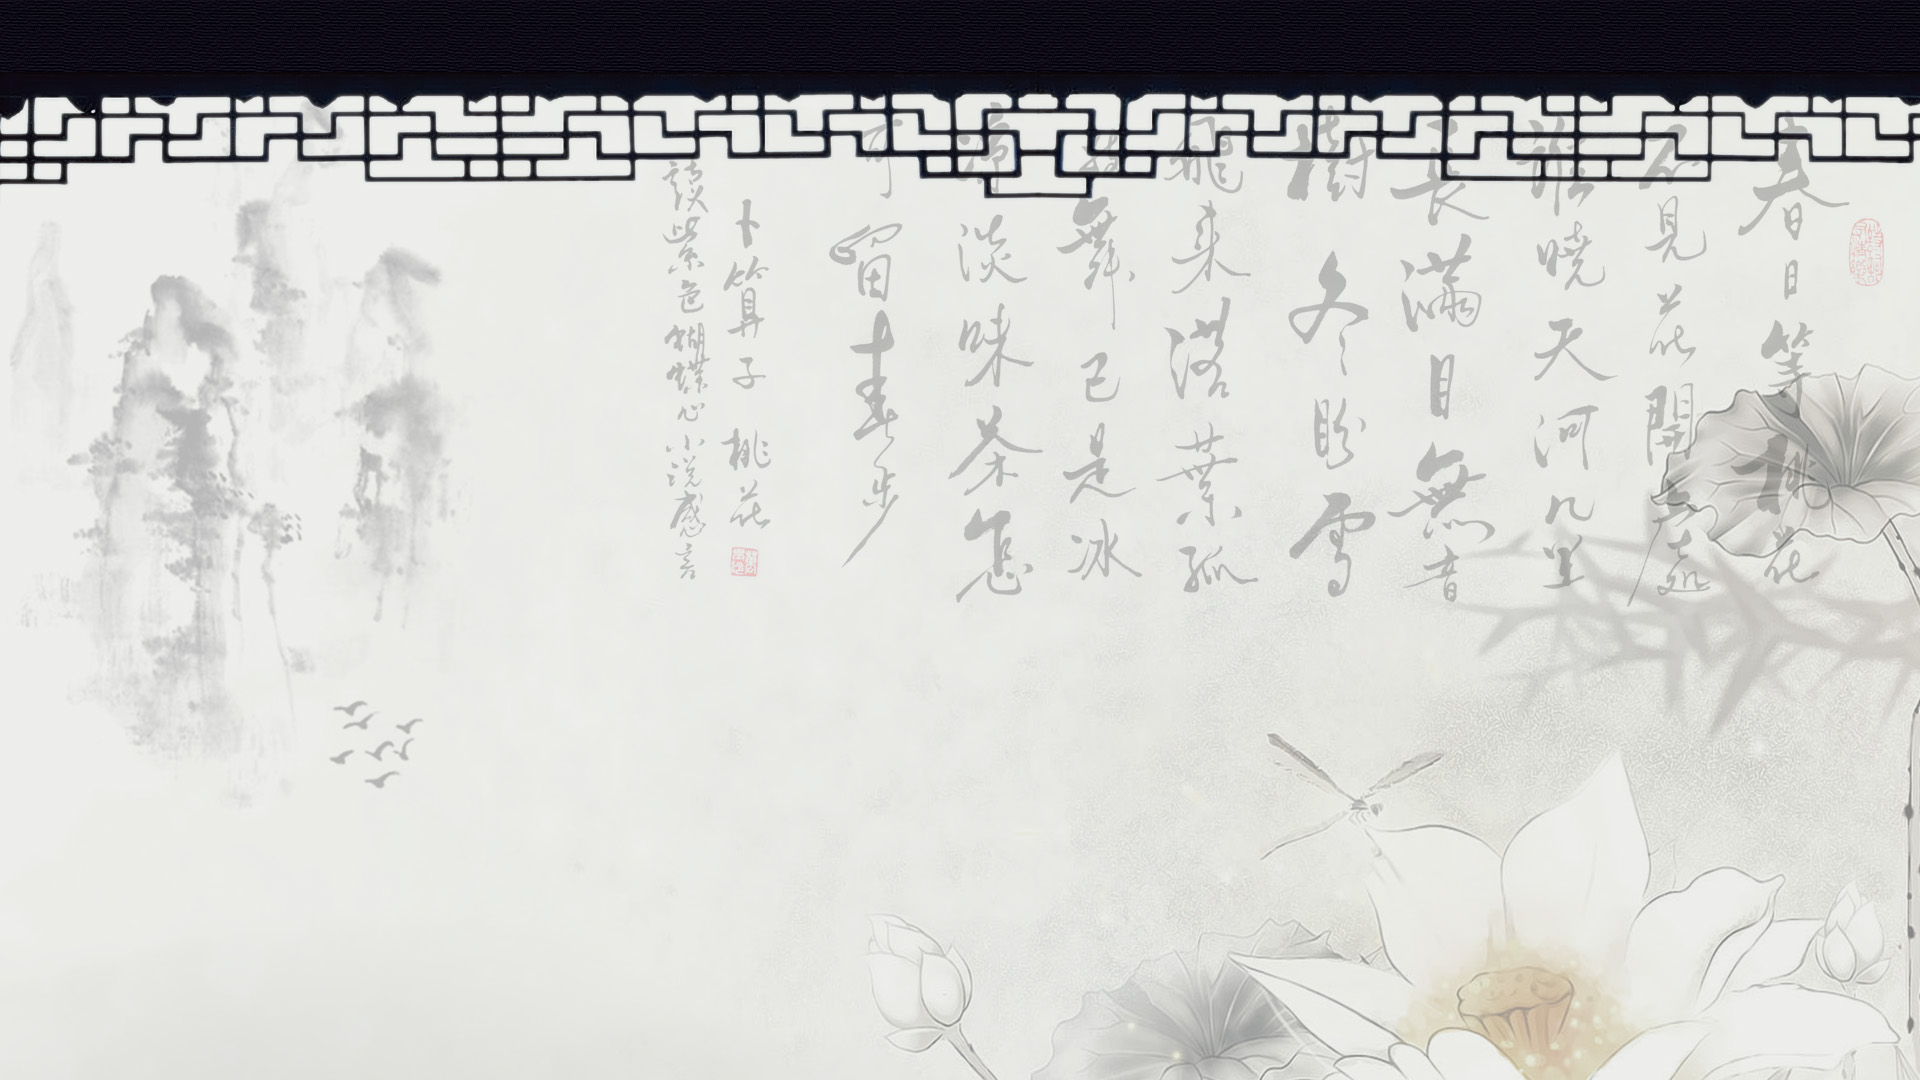 春日等桃花
不見花開處
誰曉天河几里
長滿目無音
樹冬盼雪
飛來落葉孤
舞已是冰
凉淡味茶怎
可留春步
卜算子 桃花
讀紫色蝴蝶心小説感言